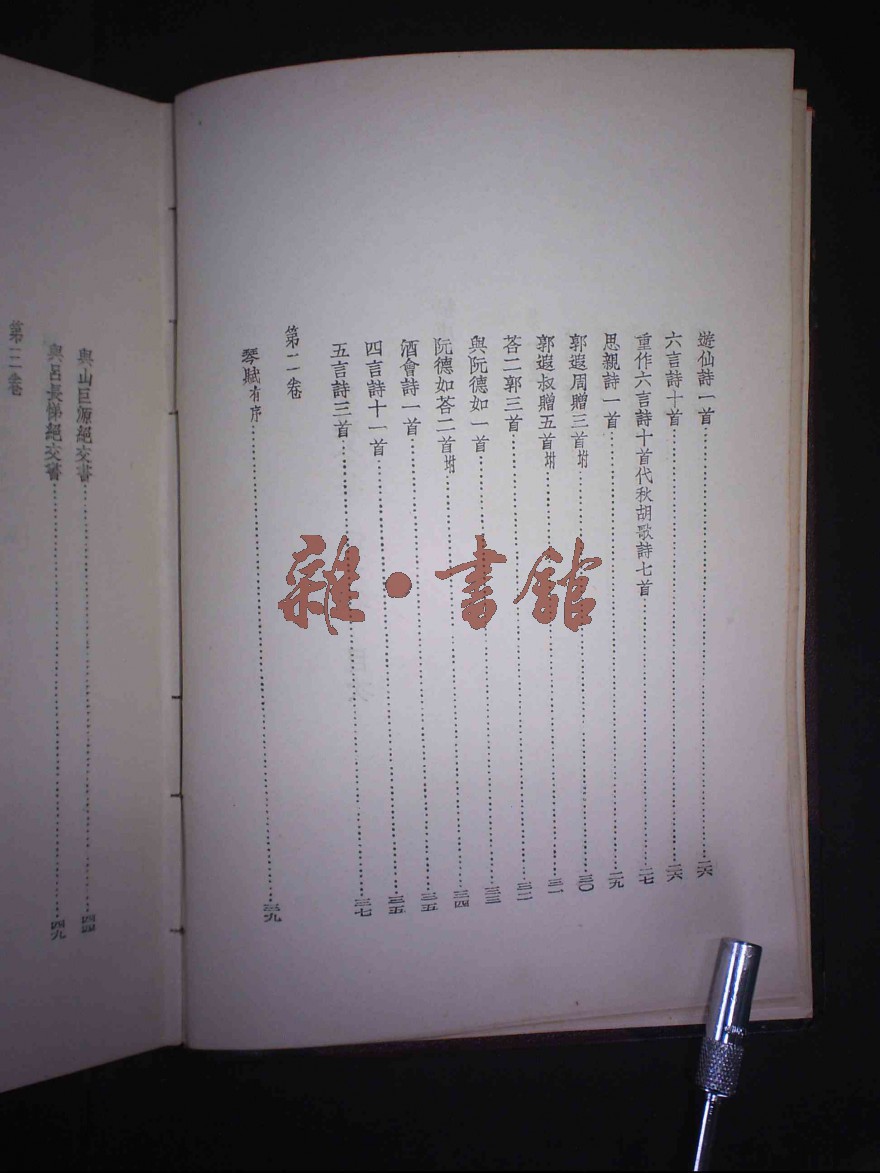 遊仙詩一首……二六
六言詩十首……二六
重作六言詩十首代秋胡歌詩七首……二七
思親詩一首……二九
郭遐周贈三首坿……三〇
郭遐叔贈五首坿……三一
荅二郭三首……三二
與阮德如一首……三三
阮德如荅二首坿……三四
酒會詩一首……三五
四言詩十一首……三五
五言詩三首……三七
第二卷
琴賦有序……三九
與山巨源絕交書……四四
與呂長悌絕交書……四九
第三卷
雜·書館